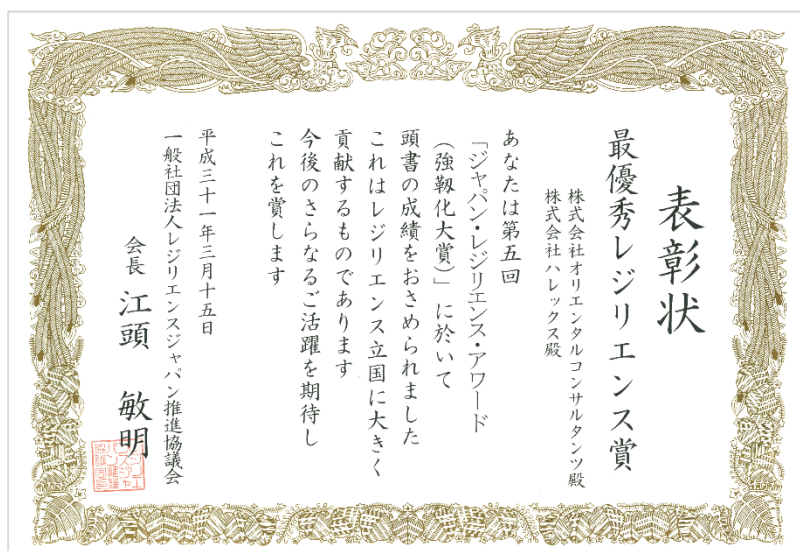 表彰状
最優秀レジリエンス賞
株式会社オリエンタルコンサルタンツ殿
株式会社ハレックス殿
あなたは第五回
「ジャパン・レジリエンス・アワード
(強靱化大賞)」に於いて
頭書の成績をおさめられました
これはレジリエンス立国に大きく
貢献するものであります
今後のさらなるご活躍を期待し
これを賞します
平成三十一年三月十五日
一般社団法人レジリエンスジャパン推進協議会
会長 江頭 敏明